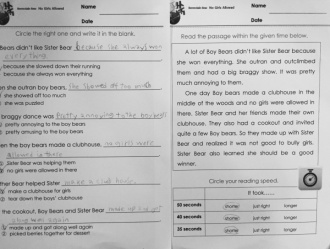 Berenstain Bears No Girls Allowed
Name
Date
Circle the right one and write it in the blank.
Bears didn't like Sister Bear because she always won
everything.
because she slowed down their running
because she always won everything
en she outran boy bears, she showed off too much
she showed off too much
she was puzzled
braggy dance was Pretty annoying to the boy bears
pretty annoying to the boy bears
pretty amusing to the boy bears
en the boy bears made a clubhouse, no girls were
allowed in there
Sister Bear was helping them
no girls were allowed in there
ther Bear helped Sister make a club house
make a clubhouse for girls
tear down the boys' clubhouse
the cookout, Boy Bears and Sister Bear made up and got
along well again
made up and got along well again
picked berries together for dessert
Berenstain Bears No Girls Allowed
Name
Date
Read the passage within the given time below.
A lot of Boy Bears didn't like Sister Bear because
she won everything. She outran and outclimbed
them and had a big braggy show. It was pretty
much annoying to them.
One day Boy Bears made a clubhouse in the
middle of the woods and no girls were allowed in
there. Sister Bear and her friends made their own
clubhouse. They also had a cookout and invited
quite a few Boy bears. So they made up with Sister
Bear and realized it was not good to bully girls.
Sister Bear also learned she should be a good
winner.
Circle your reading speed.
It took.....
50 seconds shorter just right longer
40 seconds shorter just right longer
35 seconds shorter just right longer